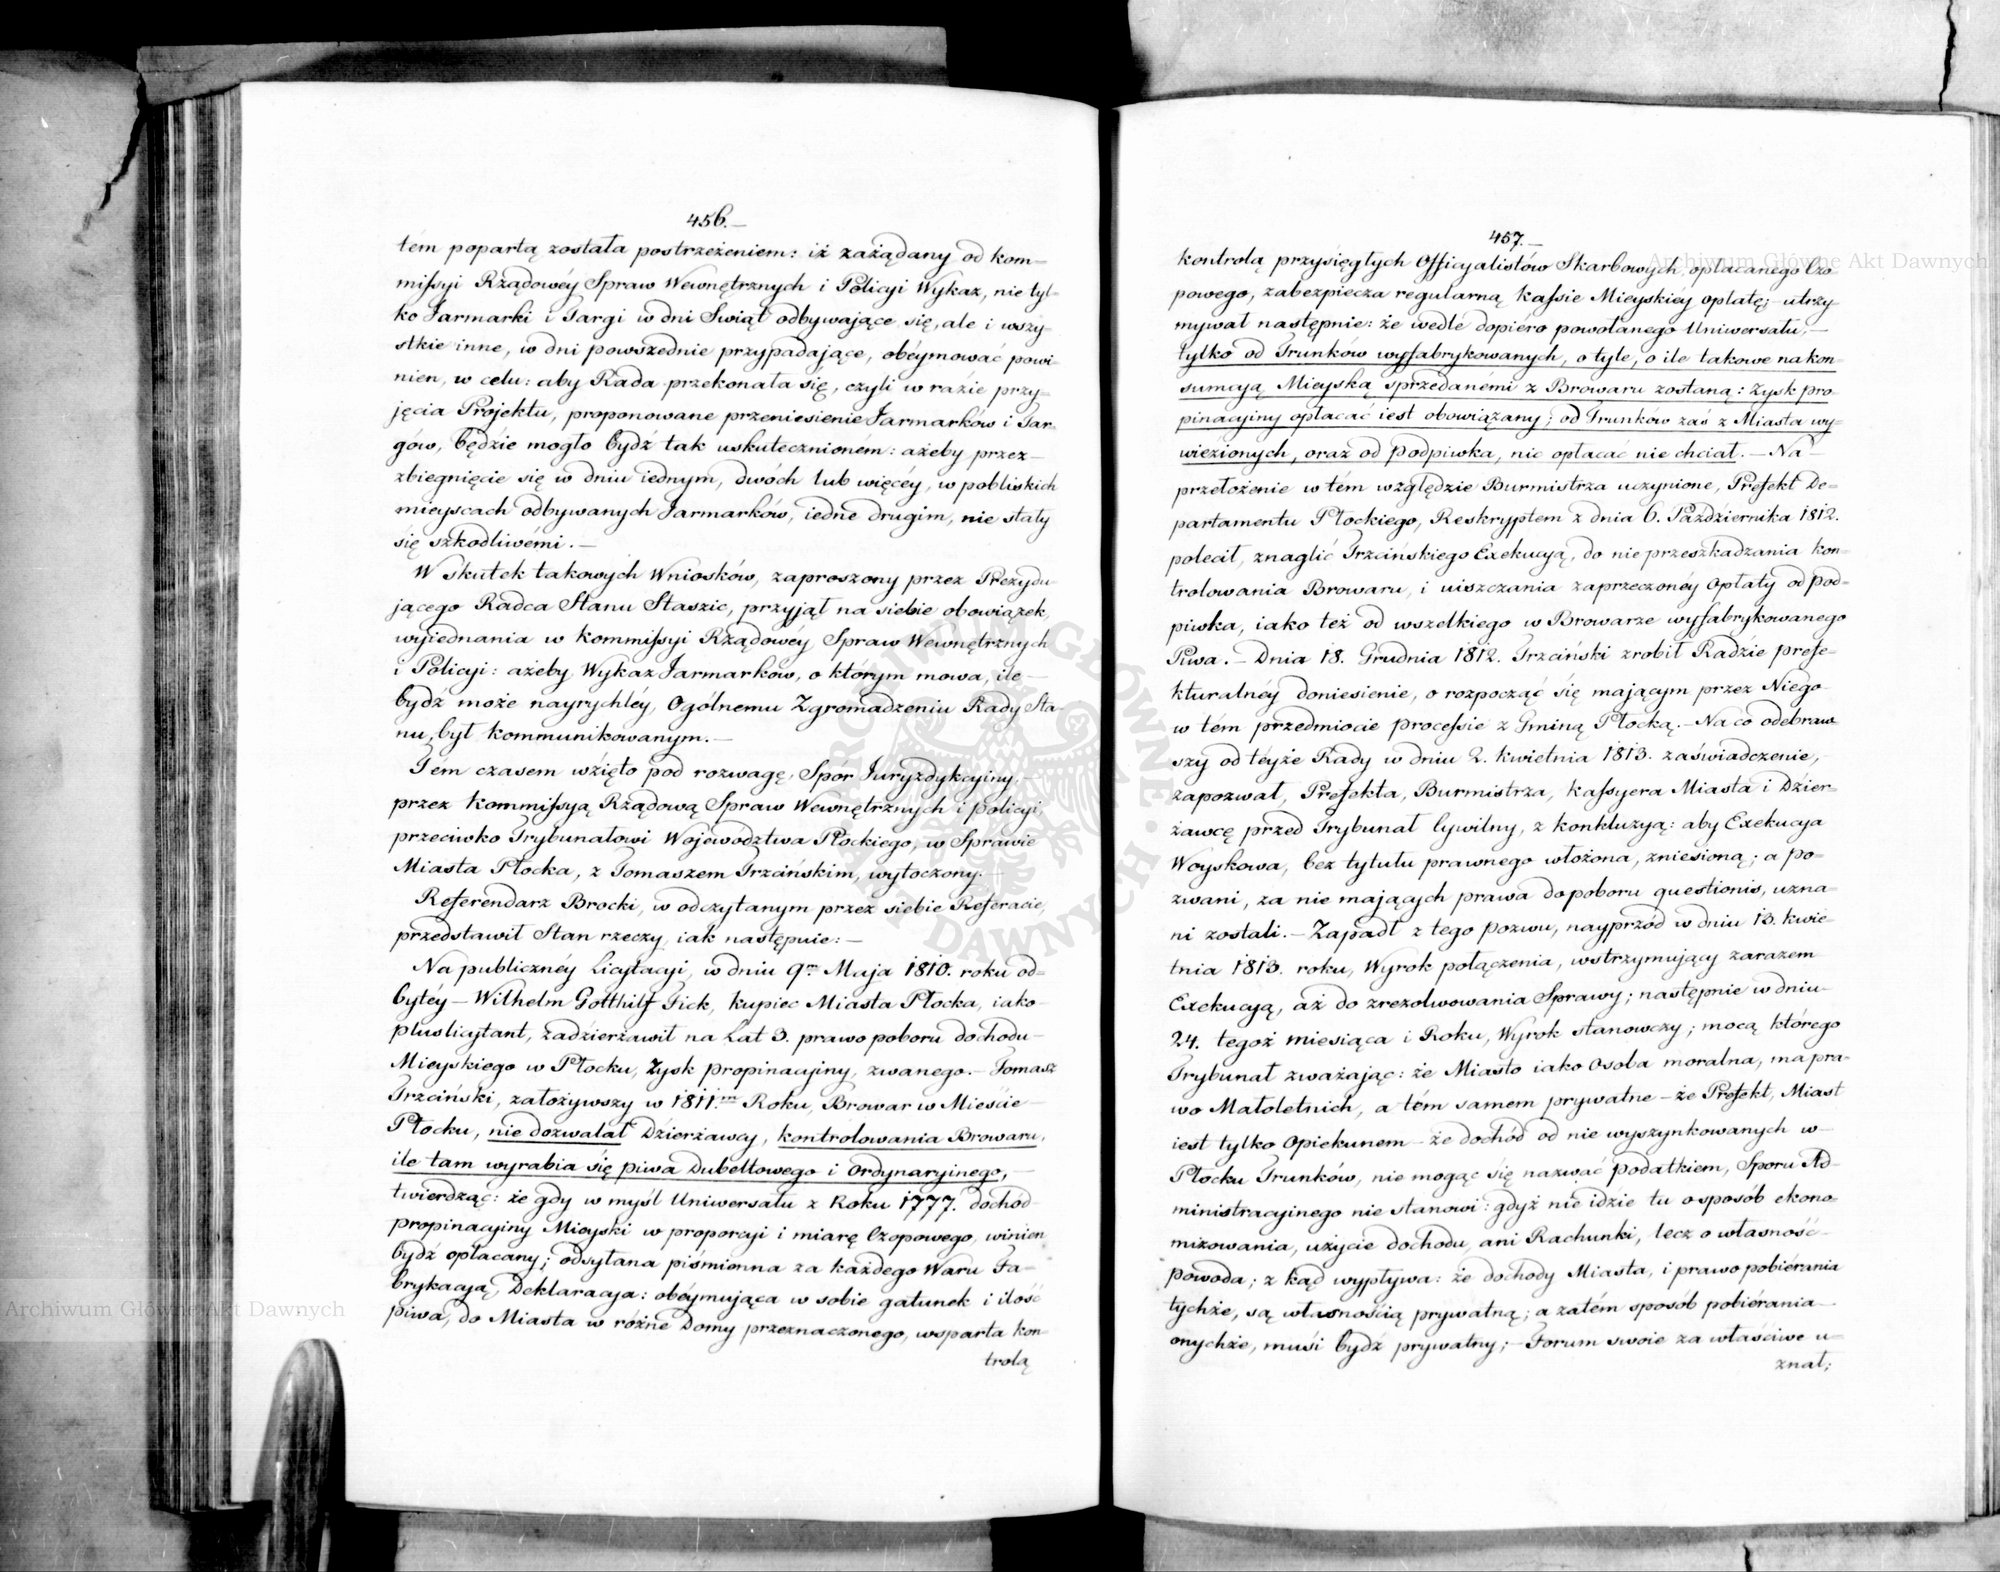 456.
tém popartą została postrzeżeniem: iż zażądany od kom-
missyi Rządowéy Spraw Wewnętrznych i Policyi Wykaz, nie tyl-
ko Jarmarki i Targi w dni Swiąt odbywające się, ale i wszy-
stkie inne, w dni powszednie przypadające, obéymować powi-
nien, w celu: aby Rada przekonała się, czyli w razie przy-
jęcia Projektu, proponowane przeniesienie Jarmarków i Tar-
gów, będzie mogło bydź tak uskutecznioném: ażeby przez
zbiegnięcie się w dniu iednym, dwóch lub więcéy, w pobliskich
mieyscach odbywanych Jarmarków, iedne drugim, nie stały
się szkodliwémi. —
W skutek takowych Wniosków, zaproszony przez Prezydu-
jącego Radca Stanu Staszic, przyjął na siebie obowiązek,
wyiednania w kommissyi Rządowéy Spraw Wewnętrznych
i Policyi: ażeby Wykaz Jarmarków, o którym mowa, ile
bydź może nayrychléy, Ogólnemu Zgromadzeniu Rady Sta-
nu, był kommunikowanym. —
Tém czasem wzięto pod rozwagę, Spór Juryzdykcyiny, —
przez kommissyą Rządową Spraw Wewnętrznych i policyi,
przeciwko Trybunałowi Województwa Płockiego, w Sprawie
Miasta Płocka, z Tomaszem Trzcińskim, wytoczony. —
Referendarz Brocki, w odczytanym przez siebie Referacie,
przedstawił Stan rzeczy, iak następuie: —
Na publicznéy Licytacyi, w dniu 9m Maja 1810. roku od-
bytéy — Wilhelm Gotthilf Fick, kupiec Miasta Płocka, iako
pluslicytant, zadzierżawił na Lat 3. prawo poboru dochodu
Mieyskiego w Płocku, Zysk propinacyiny, zwanego. — Tomasz
Trzciński, założywszy w 1811.m Roku, Browar w Mieście
Płocku, nie dozwalał Dzierżawcy, kontrolowania Browaru,
ile tam wyrabia się piwa Dubeltowego i Ordynaryinego, —
twierdząc: że gdy w myśl Uniwersału z Roku 1777. dochód
propinacyiny Mieyski w proporcyi i miarę Czopowego, winien
bydź opłacany; odsyłana piśmienna za każdego Waru Fa-
brykacyą, Deklaracya: obéymująca w sobie gatunek i ilość
piwa, do Miasta w różne Domy przeznaczonego, wsparta kon-
trolą
457.
kontrolą przysięgłych Officyalistów Skarbowych, opłacanego Czo-
powego, zabezpiecza regularną kassie Mieyskiéy opłatę; — utrzy-
mywał następnie: że wedle dopiéro powołanego Uniwersału, —
tylko od Trunków wyfabrykowanych, o tyle, o ile takowe na kon-
sumcyą Mieyską sprzedanémi z Browaru zostaną: Zysk pro-
pinacyiny opłacać iest obowiązany; od Trunków zaś z Miasta wy-
wiezionych, oraz od podpiwka, nic opłacać nie chciał. — Na
przełożenie w tém względzie Burmistrza uczynione, Prefekt De-
partamentu Płockiego, Reskryptem z dnia 6. Października 1812.
polecił, znaglić Trzcińskiego Exekucyą, do nie przeszkadzania kon-
trolowania Browaru, i uiszczania zaprzeczonéy Opłaty od pod-
piwka, iako też od wszelkiego w Browarze wyfabrykowanego
Piwa. — Dnia 18. Grudnia 1812. Trzciński zrobił Radzie prefe-
kturalnéy doniesienie, o rozpocząć się mającym przez Niego
w tém przedmiocie processie z Gminą Płocką. — Na co odebraw-
szy od téyże Rady w dniu 2. kwietnia 1813. zaświadczenie, —
zapozwał, Prefekta, Burmistrza, kassyera Miasta i Dzier-
żawcę przed Trybunał Cywilny, z konkluzyą: aby Exekucya
Woyskowa, bez tytułu prawnego włożona, zniesioną; a po-
zwani, za nie mających prawa do poboru questionis, uzna-
ni zostali. — Zapadł z tego pozwu, nayprzód w dniu 13. kwie-
tnia 1813. roku, Wyrok połączenia, wstrzymujący zarazem
Exekucyą, aż do zrezolwowania Sprawy; następnie w dniu
24. tegoż miesiąca i Roku, Wyrok stanowczy; mocą którego
Trybunał zważając: że Miasto iako Osoba moralna, ma pra-
wo Małoletnich, a tém samem prywatne — że Prefekt, Miast
iest tylko Opiekunem — że dochód od nie wyszynkowanych w
Płocku Trunków, nie mogąc się nazwać podatkiem, Sporu Ad-
ministracyinego nie stanowi: gdyż nie idzie tu o sposób ekono-
mizowania, użycie dochodu, ani Rachunki, lecz o własność
Powoda; z kąd wypływa: że dochody Miasta, i prawo pobiérania
tychże, są własnością prywatną; a zatém sposób pobiérania
onychże, musi bydź prywatny; — Forum swoie za właściwe u-
znał;
Archiwum Główne Akt Dawnych
Archiwum Główne Akt Dawnych
ARCHIWUM GŁÓWNE AKT DAWNYCH